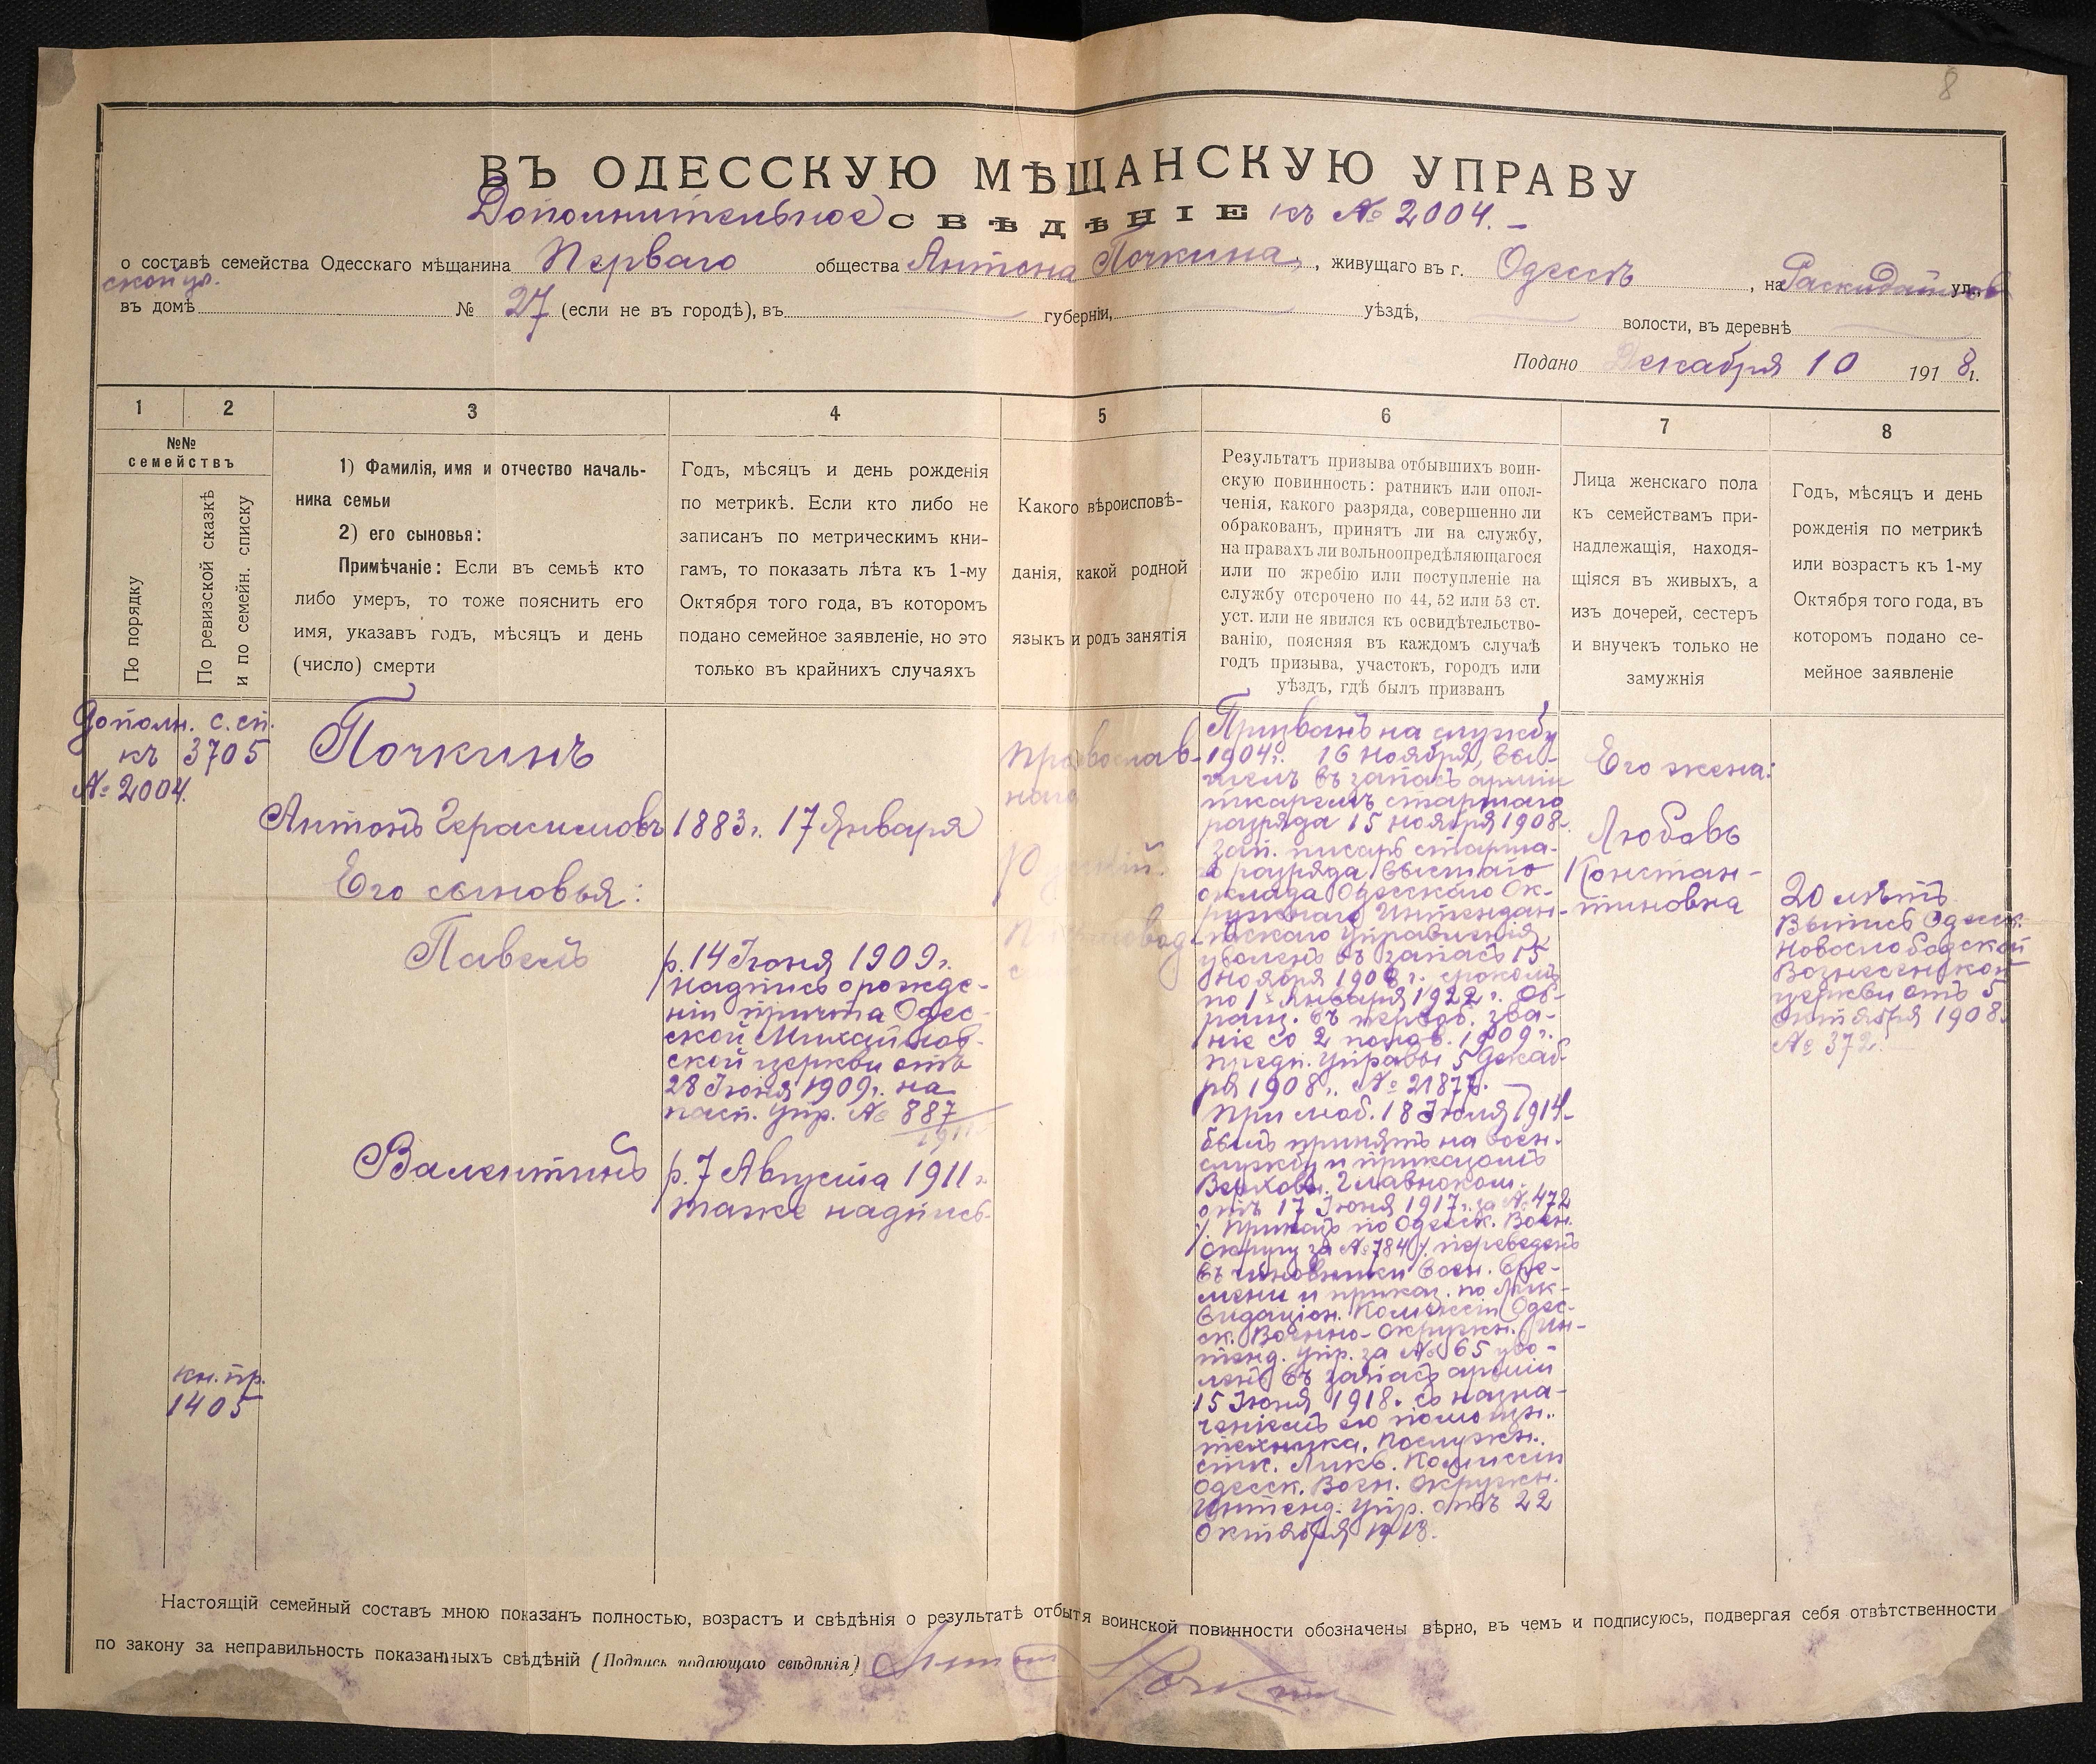 8
ВЪ ОДЕССКУЮ МѢЩАНСКУЮ УПРАВУ
Дополнительное СВѢДѢНІЕ къ № 2004.
о составѣ семейства Одесскаго мѣщанина Перваго общества Антона Почкина, живущаго въ г. Одессѣ, на Раскидайлов ул.,
ской ул.
въ домѣ № 27 (если не въ городѣ), въ губерніи, уѣздѣ, волости, въ деревнѣ
Подано Декабря 10 1918 г.
1 2 3 4 5 6 7 8
№№
семействъ
По порядку
По ревизской сказкѣ
и по семейн. списку
1) Фамилія, имя и отчество началь-
ника семьи
2) его сыновья:
Примѣчаніе: Если въ семьѣ кто
либо умеръ, то тоже пояснить его
имя, указавъ годъ, мѣсяцъ и день
(число) смерти
Годъ, мѣсяцъ и день рожденія
по метрикѣ. Если кто либо не
записанъ по метрическимъ кни-
гамъ, то показать лѣта къ 1-му
Октября того года, въ которомъ
подано семейное заявленіе, но это
только въ крайнихъ случаяхъ
Какого вѣроисповѣ-
данія, какой родной
языкъ и родъ занятія
Результатъ призыва отбывшихъ воин-
скую повинность: ратникъ или опол-
ченія, какого разряда, совершенно ли
обракованъ, принятъ ли на службу,
на правахъ ли вольноопредѣляющагося
или по жребію или поступленіе на
службу отсрочено по 44, 52 или 53 ст.
уст. или не явился къ освидѣтельство-
ванію, поясняя въ каждомъ случаѣ
годъ призыва, участокъ, городъ или
уѣздъ, гдѣ былъ призванъ
Лица женскаго пола
къ семействамъ при-
надлежащія, находя-
щіяся въ живыхъ, а
изъ дочерей, сестеръ
и внучекъ только не
замужнія
Годъ, мѣсяцъ и день
рожденія по метрикѣ
или возрастъ къ 1-му
Октября того года, въ
которомъ подано се-
мейное заявленіе
Дополн. с. сп.
къ 3705
№ 2004.
кн. пр.
1405
Почкинъ
Антонъ Герасимовъ
Его сыновья:
Павелъ
Валентинъ
1883 г. 17 Января
р. 14 Іюня 1909 г.
надпись о рожде-
ніи причта Одес-
ской Михайлов-
ской церкви отъ
28 Іюня 1909 г. на
пасп. Упр. № 887
р. 7 Августа 1911 г.
таже надпись
православ-
наго
Призванъ на службу
1904 г. 16 Ноября, вы-
численъ въ запасъ арміи
писаремъ старшаго
разряда 15 Ноября 1908 г.
Зап. писарь старша-
го разряда высшаго
оклада Одесскаго Ок-
ружнаго Интендан-
тскаго Управленія,
уволенъ въ запасъ 15
Ноября 1908 г. срокомъ
по 1е Января 1922 г. Об-
ращ. въ первоб. зва-
ніе со 2 полов. 1909 г.
предп. Управы 5 Декаб-
ря 1908 г. № 21877.
При моб. 18 Іюля 1914 г.
былъ принятъ на воен.
службу и приказомъ
Верховн. Главноком.
отъ 17 Іюня 1917 г. за № 472
/. Приказъ по Одесск. Воен.
Округу за № 784 /. переведенъ
въ чиновники воен. вре-
мени и приказ. по Лик-
видаціон. Комиссіи Одес-
ск. Военно-Окружн. Ин-
тенд. Упр. за № 65 уво-
ленъ въ запасъ арміи
15 Іюня 1918 г. съ назна-
ченіемъ его помощн.
техника. Послужн.
спис. Ликв. Комиссіи
Одесск. Воен. Окружн.
Интенд. Упр. отъ 22
Октября 1918.
Его жена:
Любовь
Констан-
тиновна
20 лѣтъ
Выпись Одесск.
Новослободской
Вознесенской
церкви отъ 5
Октября 1908 г.
№ 372.
Настоящій семейный составъ мною показанъ полностью, возрастъ и свѣдѣнія о результатѣ отбытя воинской повинности обозначены вѣрно, въ чемъ и подписуюсь, подвергая себя отвѣтственности
по закону за неправильность показанныхъ свѣдѣній (Подпись подающаго свѣдѣнія) Антонъ Почкинъ